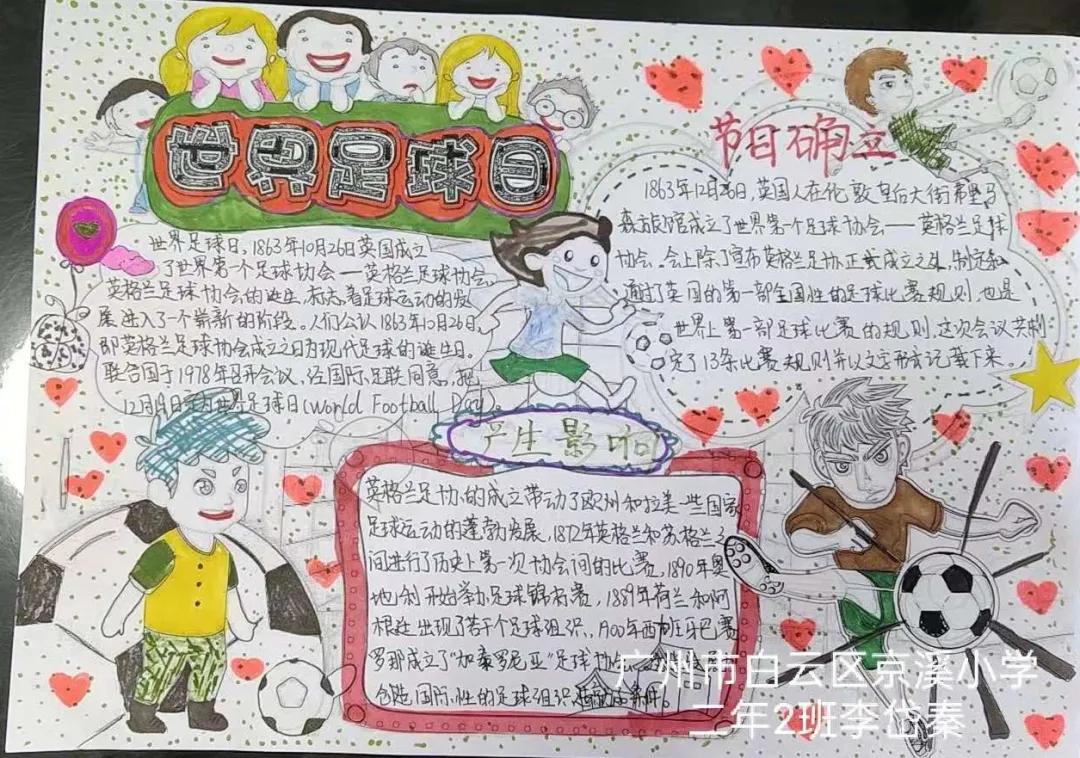 世界足球日
世界足球日,1863年10月26日英国成立
了世界第一个足球协会——英格兰足球协会,
英格兰足球协会的诞生,标志着足球运动的发
展进入了一个崭新的阶段。人们公认1863年10月26日,
即英格兰足球协会成立之日为现代足球的诞生日。
联合国于1978年召开会议,经国际足联同意,把
12月19日定为世界足球日(World Football Day)。
节日确立
1863年12月26日,英国人在伦敦皇后大街弗里马
森旅馆成立了世界第一个足球协会——英格兰足球
协会。会上除了宣布英格兰足协正式成立之外,制定和
通过了英国的第一部全国性的足球比赛规则,也是
世界上第一部足球比赛的规则,这次会议共制
定了13条比赛规则并以文字形式记载下来。
产生影响
英格兰足协的成立带动了欧洲和拉美一些国家
足球运动的蓬勃发展,1872年英格兰和苏格兰之
间进行了历史上第一次协会间的比赛,1890年奥
地利开始举办足球锦标赛,1889年荷兰和阿
根廷出现了若干个足球组织,1900年西班牙巴塞
罗那成立了"加泰罗尼亚"足球协会
创造国际性的足球组织
广州市白云区京溪小学
二年2班李岱秦